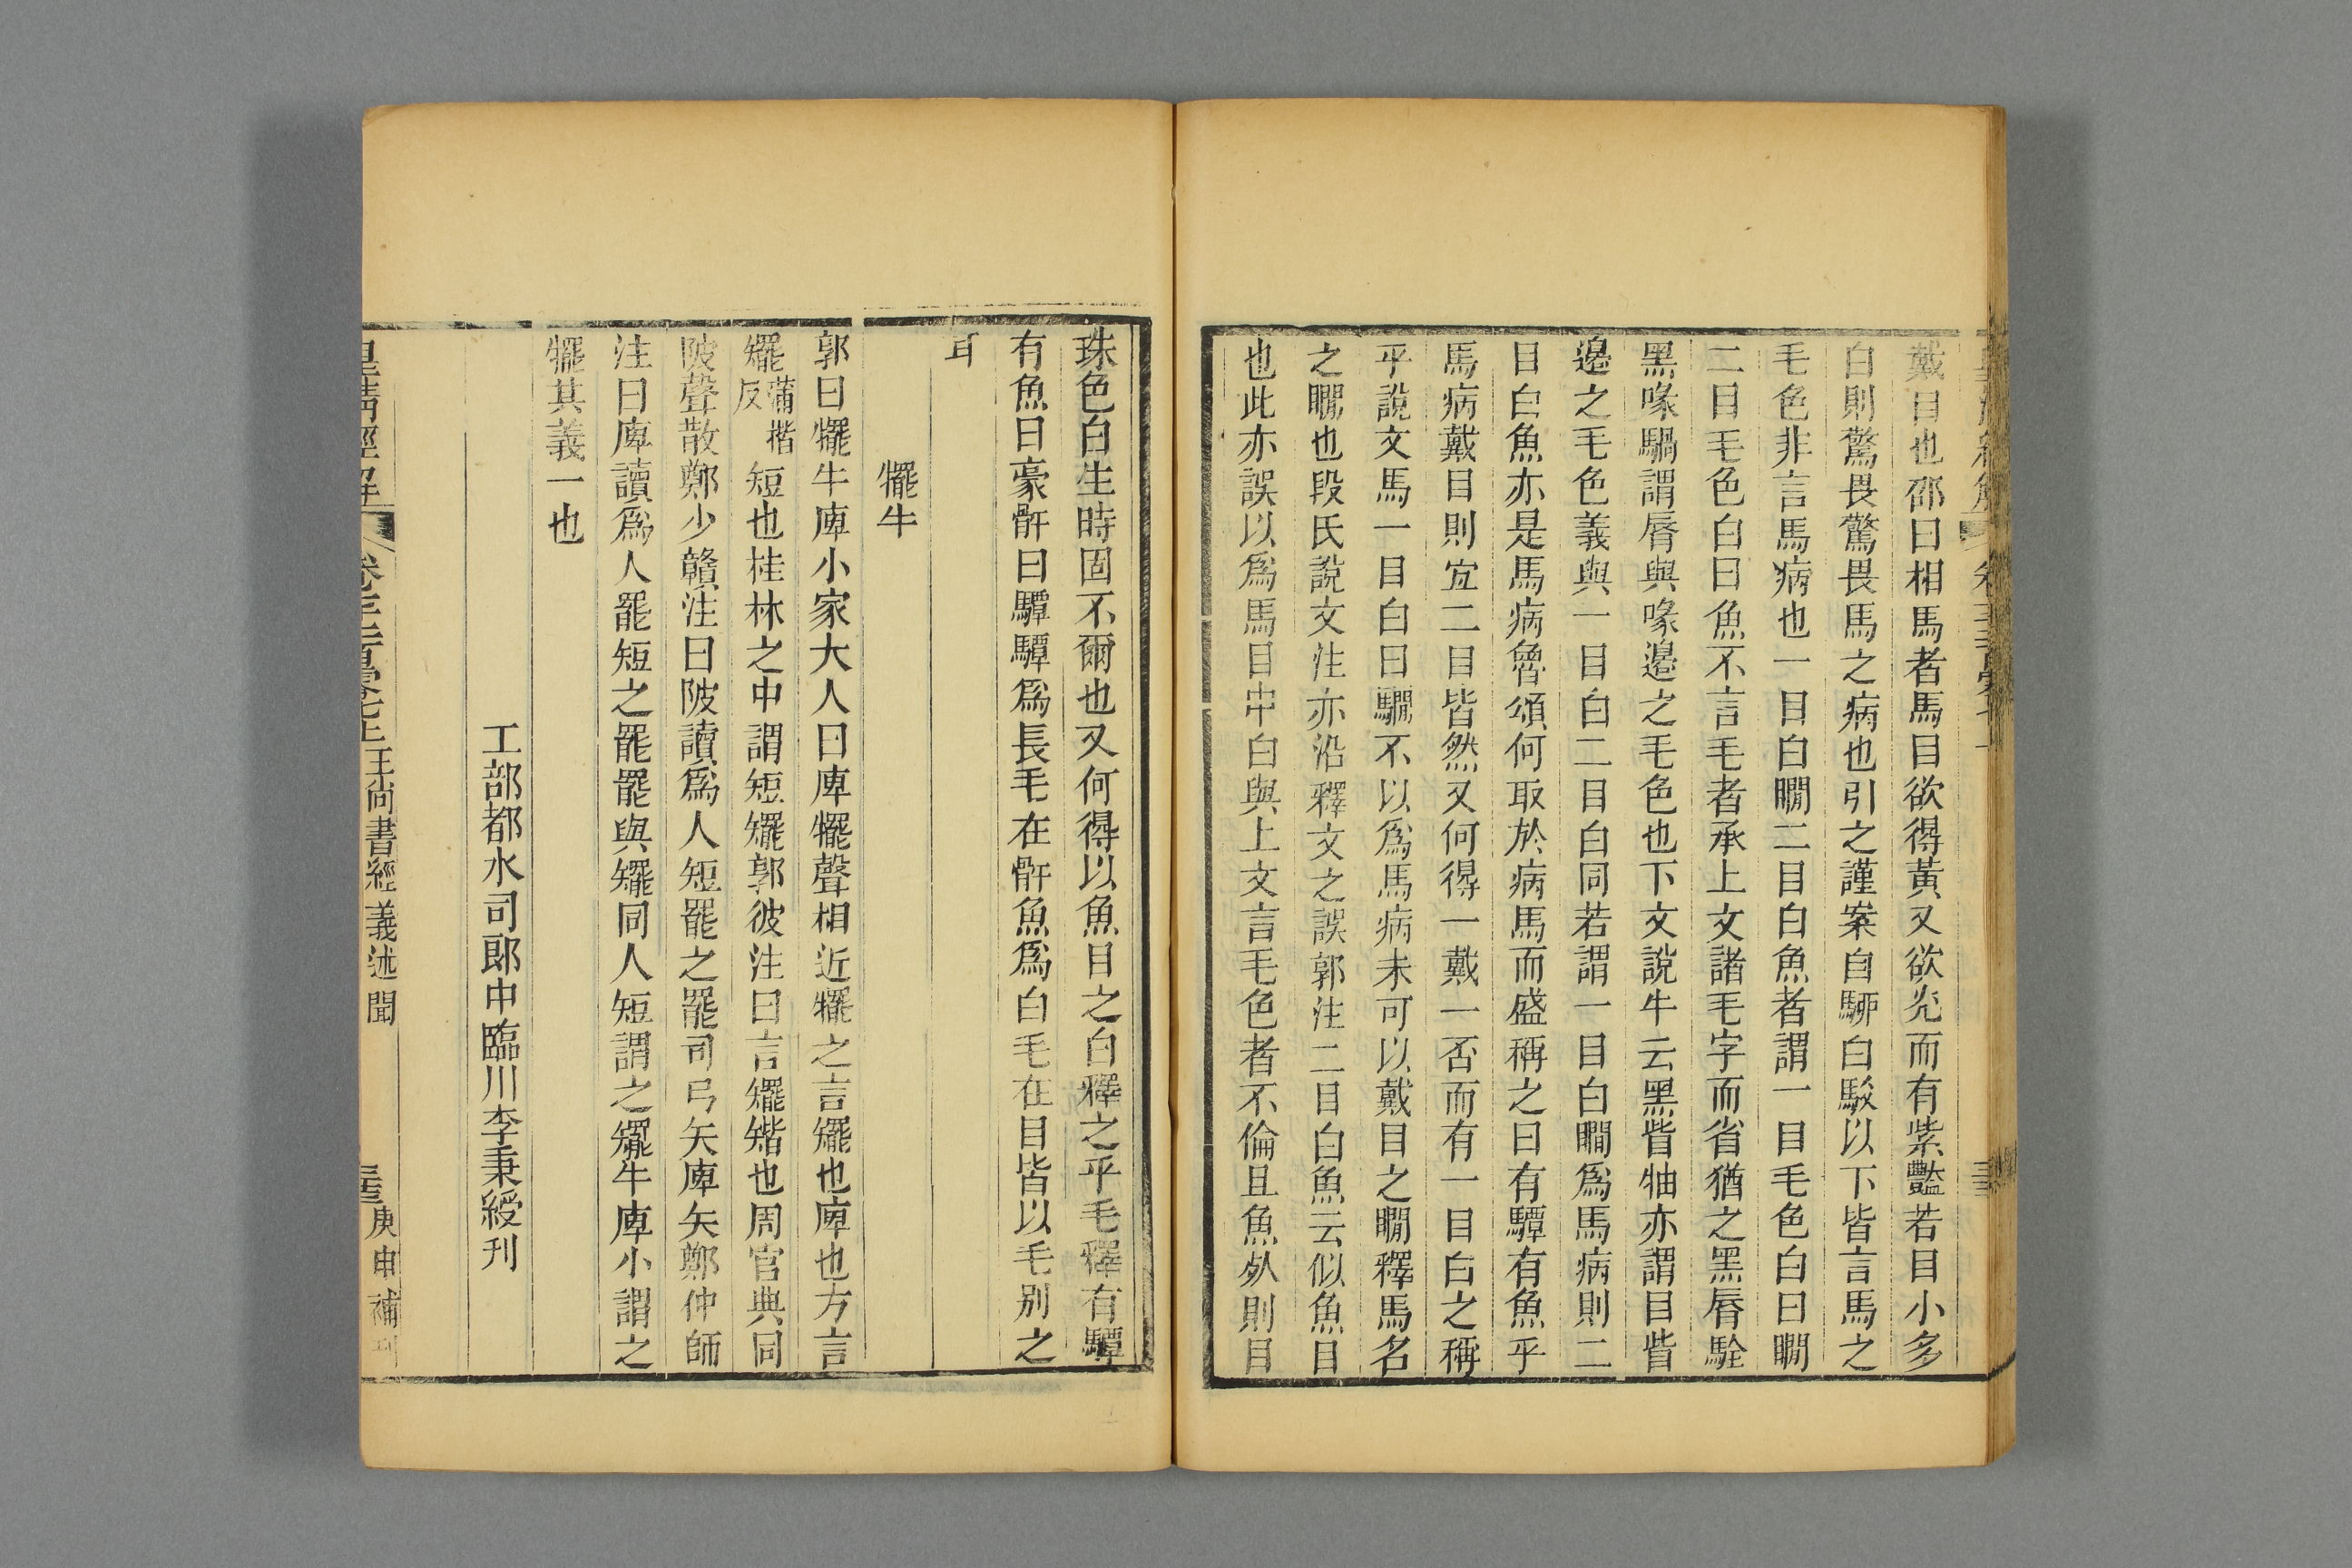 戴目也邵曰相馬者馬目欲得黃又欲光而有紫豔若目小多
白則驚畏驚畏馬之病也引之謹案自駵白駁以下皆言馬之
毛色非言馬病也一目白瞯二目白魚者謂一目毛色白曰瞯
二目毛色白曰魚不言毛者承上文諸毛字而省猶之黑脣駩
黑喙騧謂脣與喙邊之毛色也下文說牛云黑眥牰亦謂目眥
邊之毛色義與一目白二目白同若謂一目白瞯爲馬病則二
目白魚亦是馬病魯頌何取於病馬而盛稱之曰有驔有魚乎
馬病戴目則宜二目皆然又何得一戴一否而有一目白之稱
乎說文馬一目白曰驧不以爲馬病未可以戴目之瞯釋馬名
之瞯也段氏說文注亦沿釋文之誤郭注二目白魚云似魚目
也此亦誤以爲馬目中白與上文言毛色者不倫且魚㱾則目
珠色白生時固不爾也又何得以魚目之白釋之乎毛釋有驔
有魚曰豪骭曰驔驔爲長毛在骭魚爲白毛在目皆以毛別之
耳
犤牛
郭曰犤牛庳小家大人曰庳犤聲相近犤之言䎱也庳也方言
䎱蒲揩反短也桂林之中謂短䎱郭彼注曰言䎱㿇也周官典同
陂聲散鄭少贛注曰陂讀爲人短罷之罷司弓矢庳矢鄭仲師
注曰庳讀爲人罷短之罷罷與䎱同人短謂之䎱牛庳小謂之
犤其義一也
工部都水司郎中臨川李秉綬刊
皇清經解
王尚書經義述聞
庚申補刊